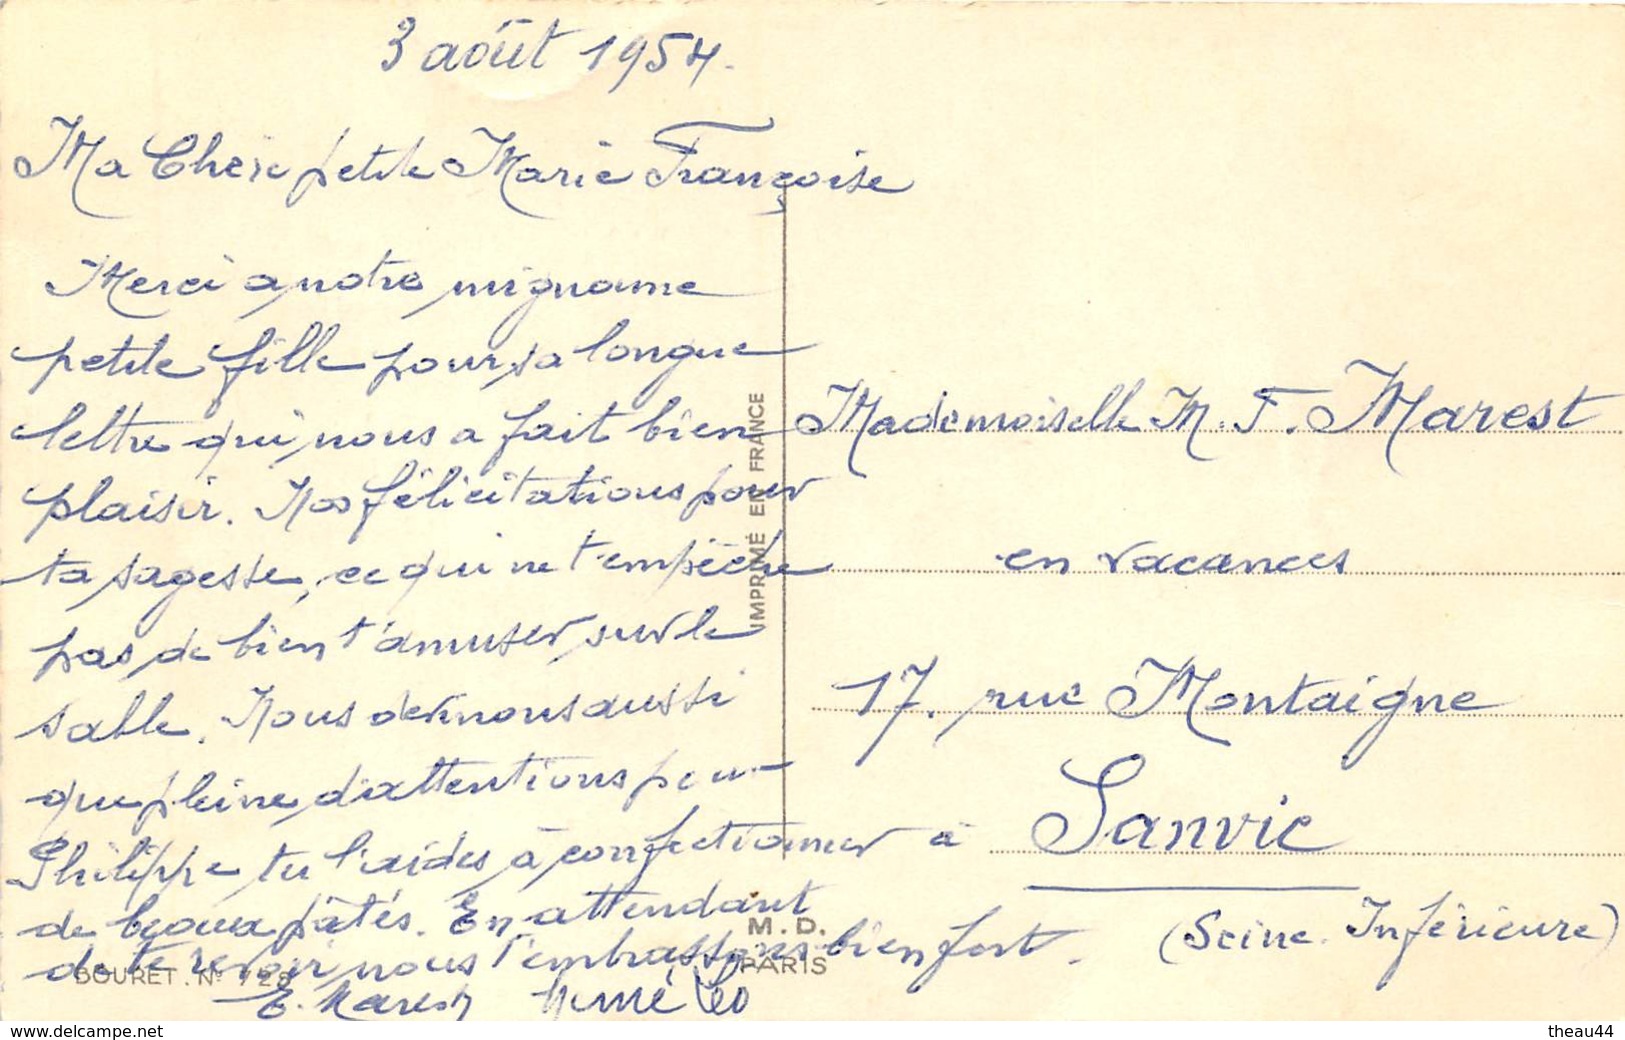 3 août 1954.
Ma Chère petite Marie Françoise
Merci a notre mignonne
petite fille pour sa longue
lettre qui nous a fait bien
plaisir. Nos félicitations pour
ta sagesse, ce qui ne t'empêche
pas de bien t'amuser sur le
sable. Nous devinons aussi
que pleine d'attentions pour
Philippe tu l'aides à confectionner
de beaux pâtés. En attendant
de te revoir nous t'embrassons bien fort.
E. Marest Mémé
IMPRIMÉ EN FRANCE
M.D.
PARIS
BOURET. No 128
Mademoiselle M. F. Marest
en vacances
17. rue Montaigne
à Sanvic
(Seine Inférieure)
https://www.delcampe.net
theau44